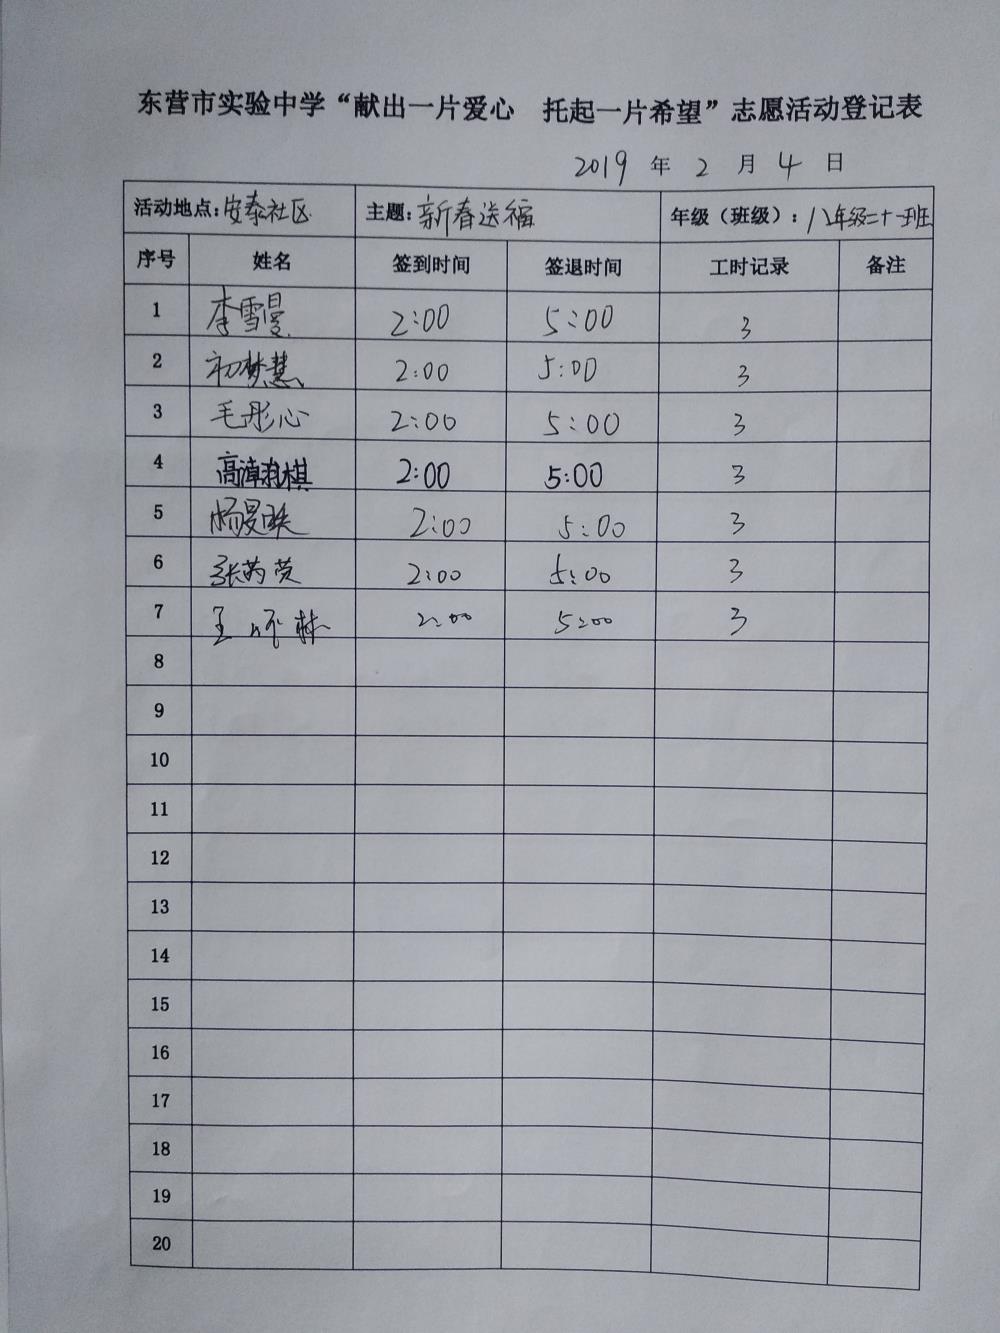 东营市实验中学“献出一片爱心 托起一片希望”志愿活动登记表
2019 年 2 月 4 日
活动地点：安泰社区 主题：新春送福 年级（班级）：八年级二十一班
序号 姓名 签到时间 签退时间 工时记录 备注
1 李雪曼 2:00 5:00 3
2 初梦慧 2:00 5:00 3
3 毛彤心 2:00 5:00 3
4 高 棋 2:00 5:00 3
5 杨曼 2:00 5:00 3
6 张 2:00 5:00 3
7 王 林 2:00 5:00 3
8
9
10
11
12
13
14
15
16
17
18
19
20